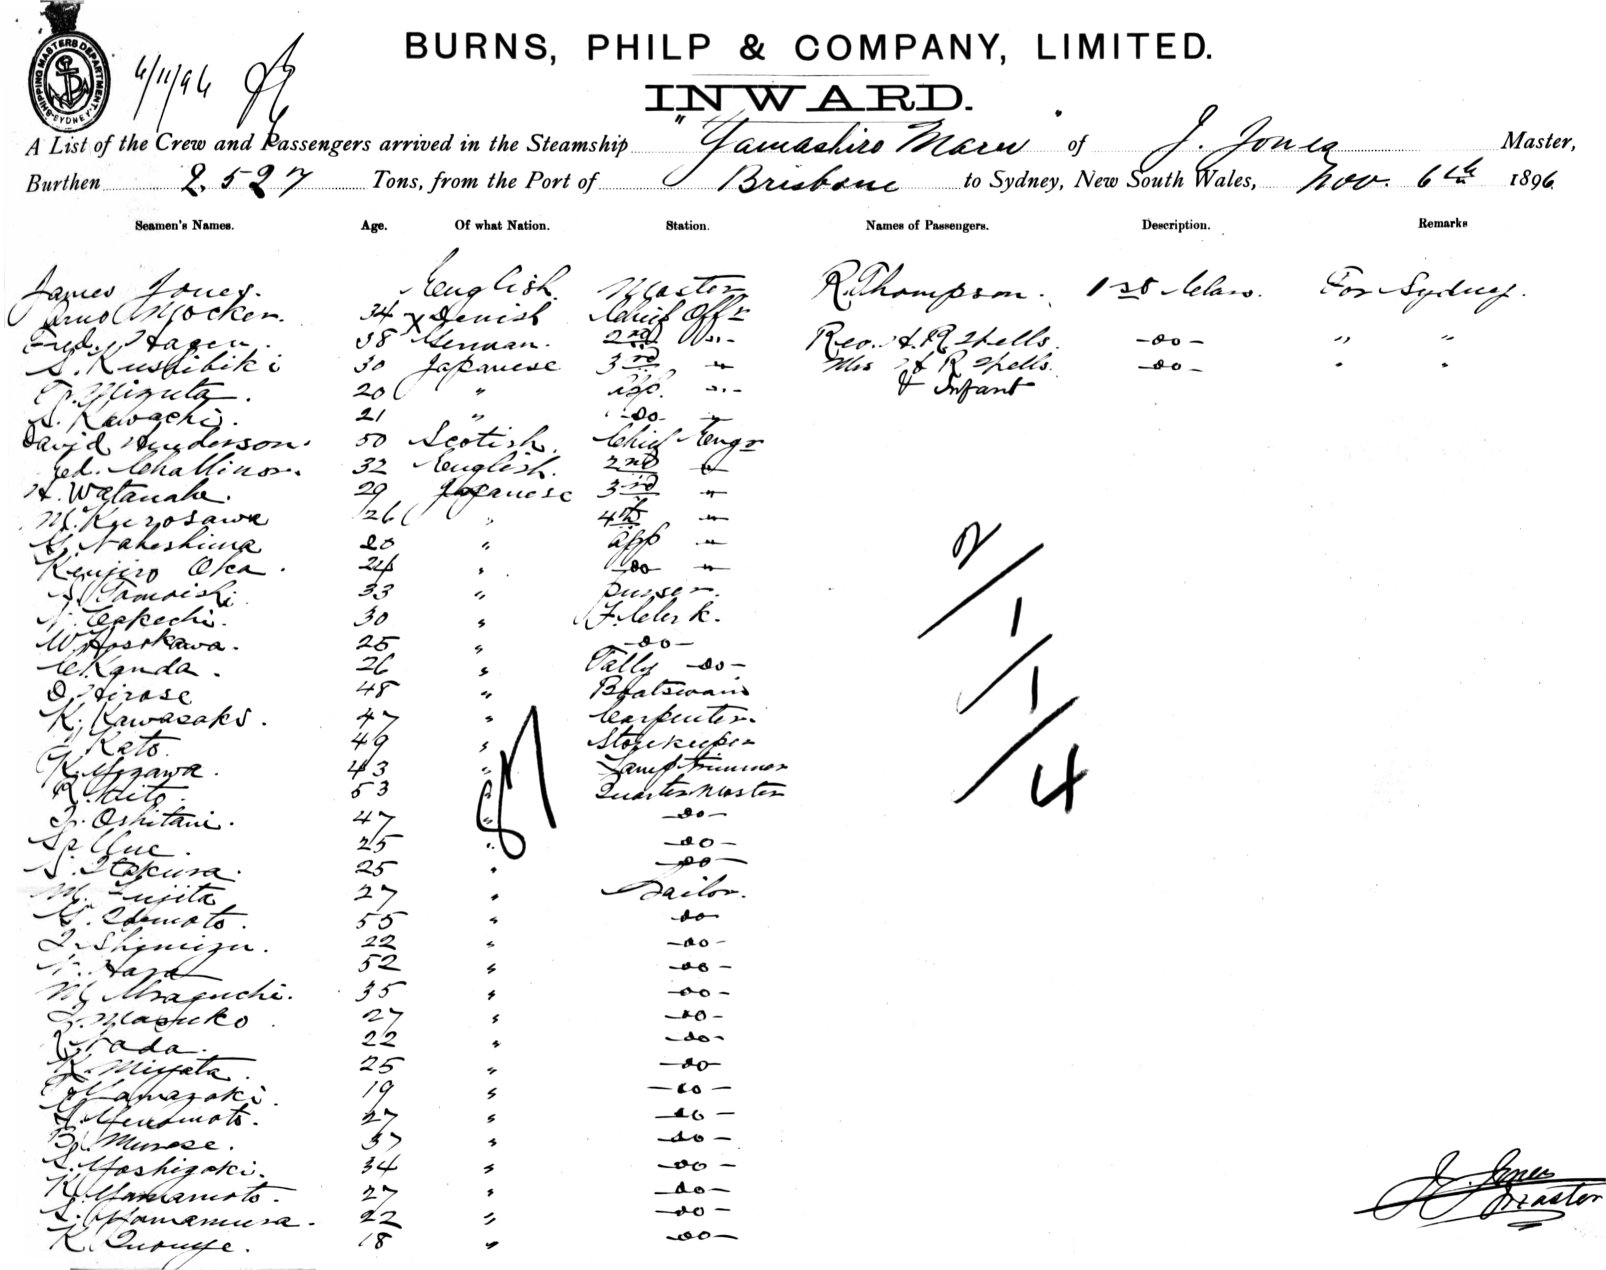 SHIPPING MASTERS DEPARTMENT. SYDNEY
6/11/96
BURNS, PHILP & COMPANY, LIMITED.
INWARD.
A List of the Crew and Passengers arrived in the Steamship "Yamashiro Maru" of J. Jones Master,
Burthen 2,527 Tons, from the Port of Brisbane to Sydney, New South Wales, Nov. 6th 1896
Seamen's Names. Age. Of what Nation. Station. Names of Passengers. Description. Remarks
James Jones. English Master R. Thompson. 1st Class. For Sydney.
34 x Danish Chief Offr
Fred. Hagen. 38 German. 2nd " Rev. H. R. -do- " "
S. Kushibiki 30 Japanese 3rd " Mrs H R -do- " "
T. Mizuta. 20 " app. " & Infant
S. Kawachi. 21 " -do- "
David Henderson. 50 Scotish. Chief Engr
Fed. Challinor. 32 English. 2nd "
H. Watanabe. 29 Japanese 3rd "
M. Kurosawa 26 " 4th "
Nakeshima 20 " app "
Kenjiro Oka. 24 " do "
Tomoishi 33 " purser.
Takechi. 30 " F. Clerk.
W. Hosokawa. 25 " -do-
C. Kanda. 26 " Tally -do-
O. Hirose 48 " Boatswain
K. Kawasaki. 47 " Carpenter.
Kato. 49 " Storekeeper
K. Mizawa. 43 " Lamp trimmer
K. Kito. 53 " Quarter Master
Oshitani. 47 " -do-
Uue. 25 " -do-
S. Itakura. 25 " -do-
M. Fujita 27 " Sailor.
55 " -do-
Shimizu. 22 " -do-
Hara 52 " -do-
M. 35 " -do-
Masuko 27 " -do-
Wada. 22 " -do-
K. Miyata. 25 " -do-
T. Yamazaki. 19 " -do-
27 " -do-
Murase. 37 " -do-
S. Yoshizaki. 34 " -do-
K. Yamamoto. 27 " -do-
S. Yamamura. 22 " -do-
K. Inouye. 18 " -do-
2/1/1/4
J. Jones
Master